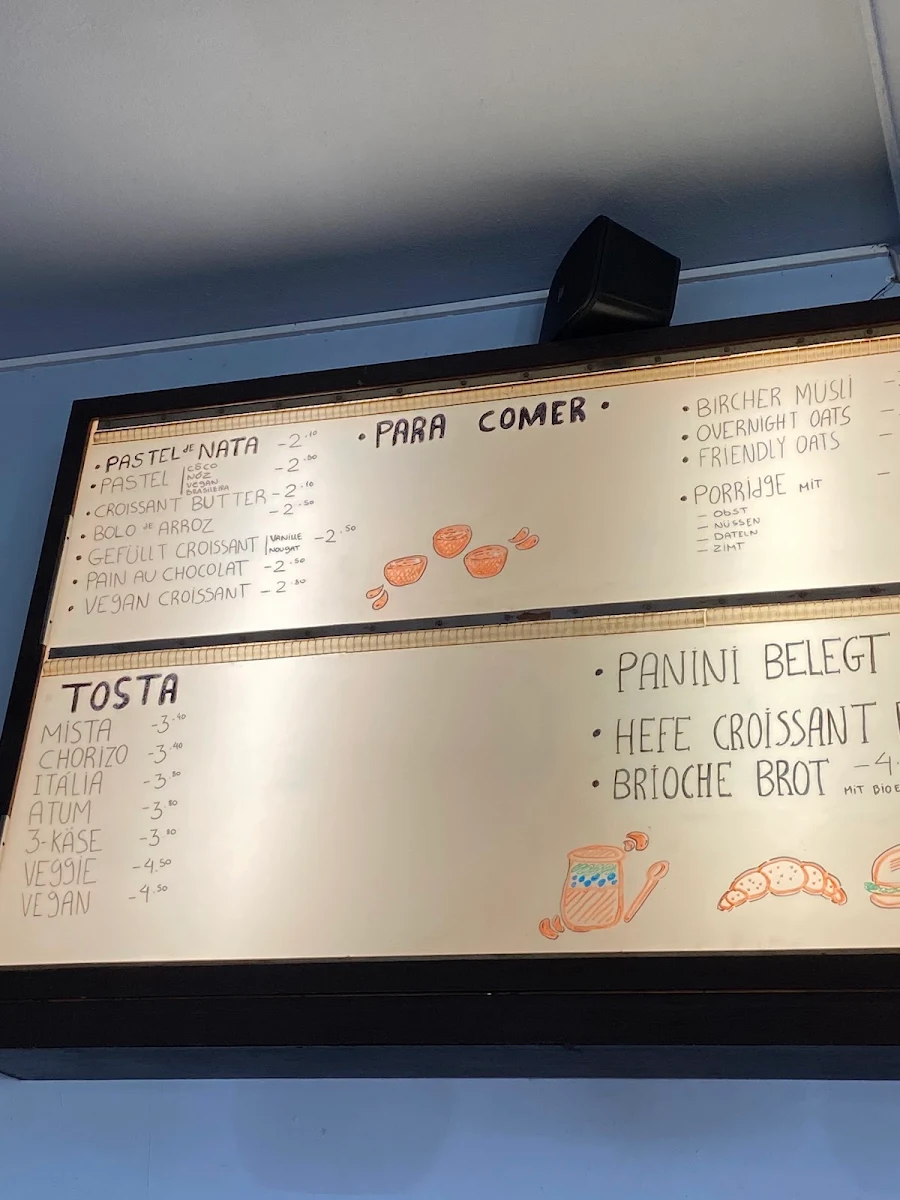 • PARA COMER •
• PASTEL de NATA -2.10
• PASTEL | COCO -2.50
NOZ
VEGAN
BRASILEIRA
• CROISSANT BUTTER -2.10
• BOLO de ARROZ -2.50
• GEFÜLLT CROISSANT | VANILLE -2.50
NOUGAT
• PAIN AU CHOCOLAT -2.50
• VEGAN CROISSANT -2.80
• BIRCHER MÜSLI -
• OVERNIGHT OATS -
• FRIENDLY OATS -
• PORRIDGE MIT -
- OBST
- NÜSSEN
- DATELN
- ZIMT
TOSTA
MISTA -3.40
CHORIZO -3.40
ITÁLIA -3.80
ATUM -3.80
3-KÄSE -3.80
VEGGIE -4.50
VEGAN -4.50
• PANINI BELEGT
• HEFE CROISSANT
• BRIOCHE BROT -4.
MIT BIO